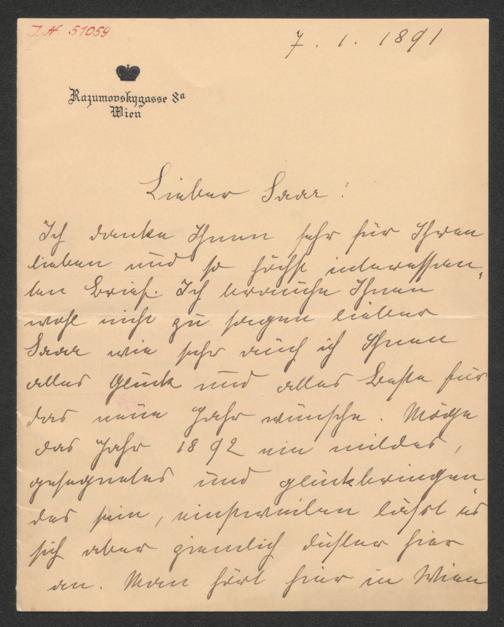 I.N. 51059
7. 1. 1891
Razumovskygasse 8a
Wien
Lieber Saar!
Ich danke Ihnen sehr für Ihren
lieben und so höchst interessan-
ten Brief. Ich brauche Ihnen
wohl nicht zu sagen lieber
Saar wie sehr auch ich Ihnen
alles Glück und alles Beste für
das neue Jahr wünsche. Möge
das Jahr 1892 ein mildes,
gesegnetes und glückbringen-
des sein, einstweilen läßt es
sich aber ziemlich düster hier
an. Man hört hier in Wien